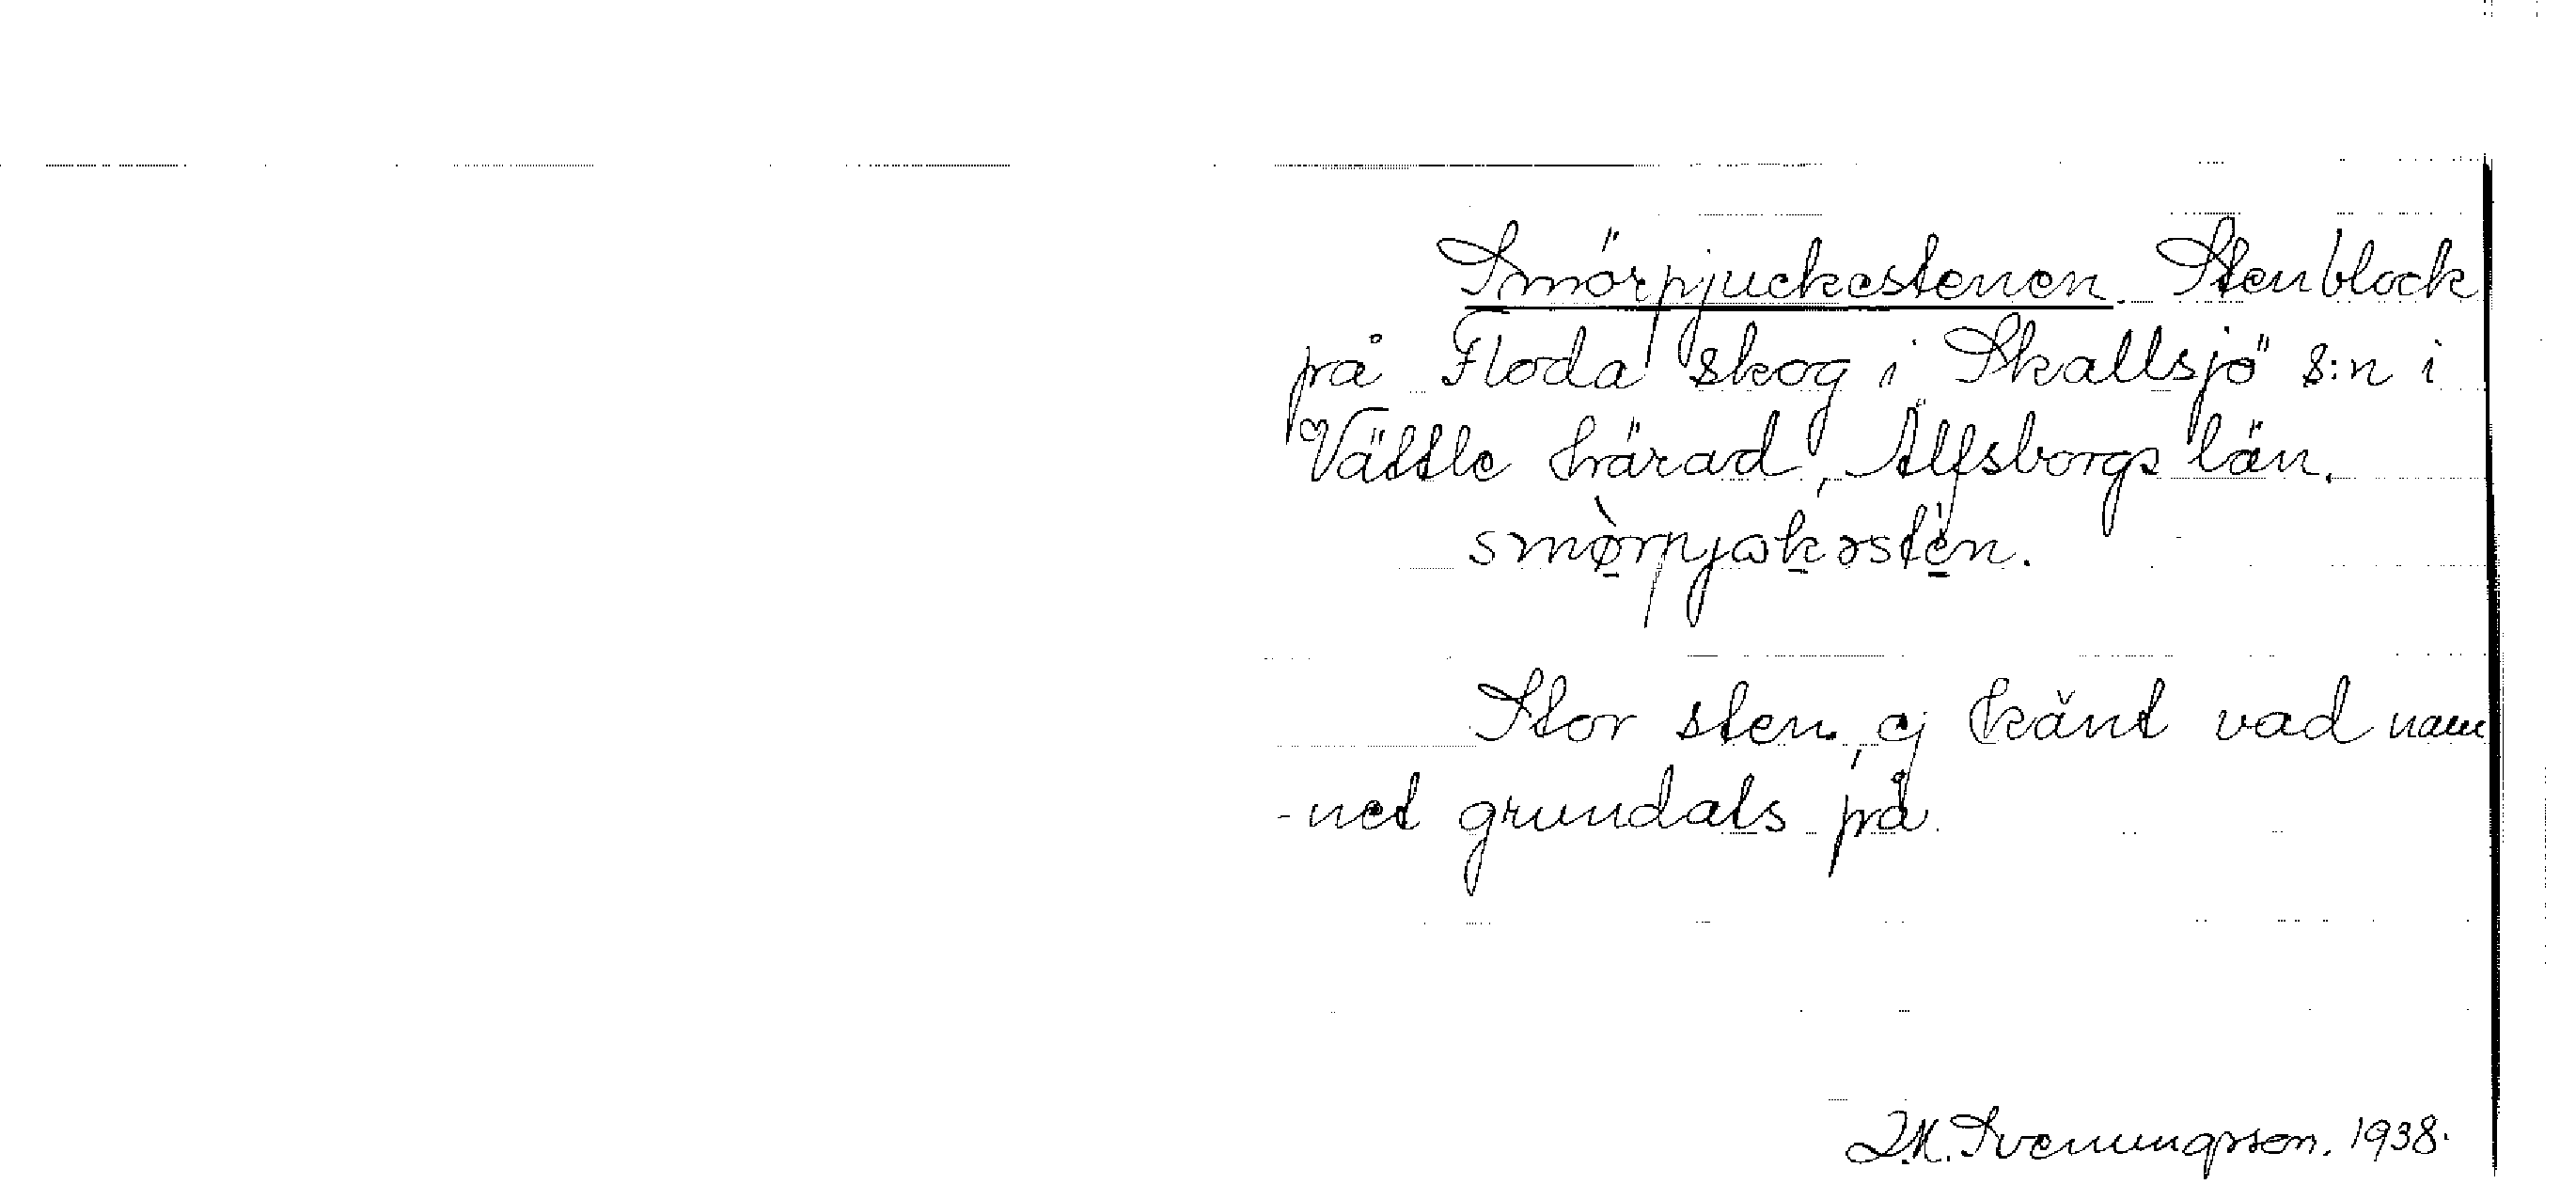 Smörpjuckestenen. Stenblock
på Floda skog i Skallsjö s:n i
Vättle härad, Älfsborgs län.
smø̀rpjɷkəstèn.
Stor sten, ej känt vad nam
-net grundats på.
1938.